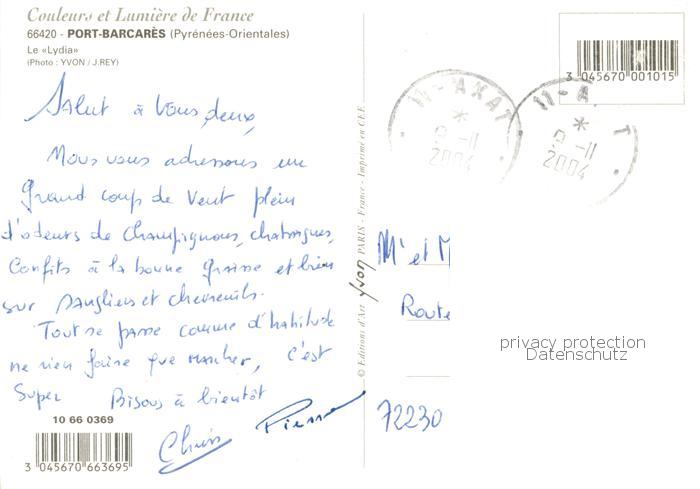 Couleurs et Lumière de France
66420 - PORT-BARCARÈS (Pyrénées-Orientales)
Le «Lydia»
(Photo : YVON / J.REY)
Salut à vous deux,
Nous vous adressons un
grand coup de vent plein
d'odeurs de champignons, chataignes,
Confits à la bonne graisse et bien
sur sangliers et chevreuils.
Tout se passe comme d'habitude
ne rien faire que marcher, c'est
Super Bisous à bientôt
Chris Pierre
10 66 0369
3 045670 663695
© Editions d'Art Yvon PARIS - France - Imprimé en CEE
3 045670 001015
11-AXAT
* 9-11
2004
11-A T
* 9-11
2004
Mr et M
Route
72230
privacy protection
Datenschutz